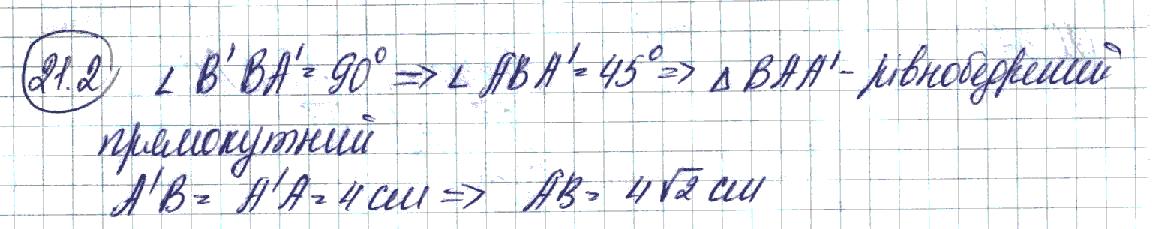 21.2 ∠ B'BA' = 90° => ∠ ABA' = 45° => Δ BAA' - рівнобедрений
прямокутний
A'B = A'A = 4 см => AB = 4√2 см